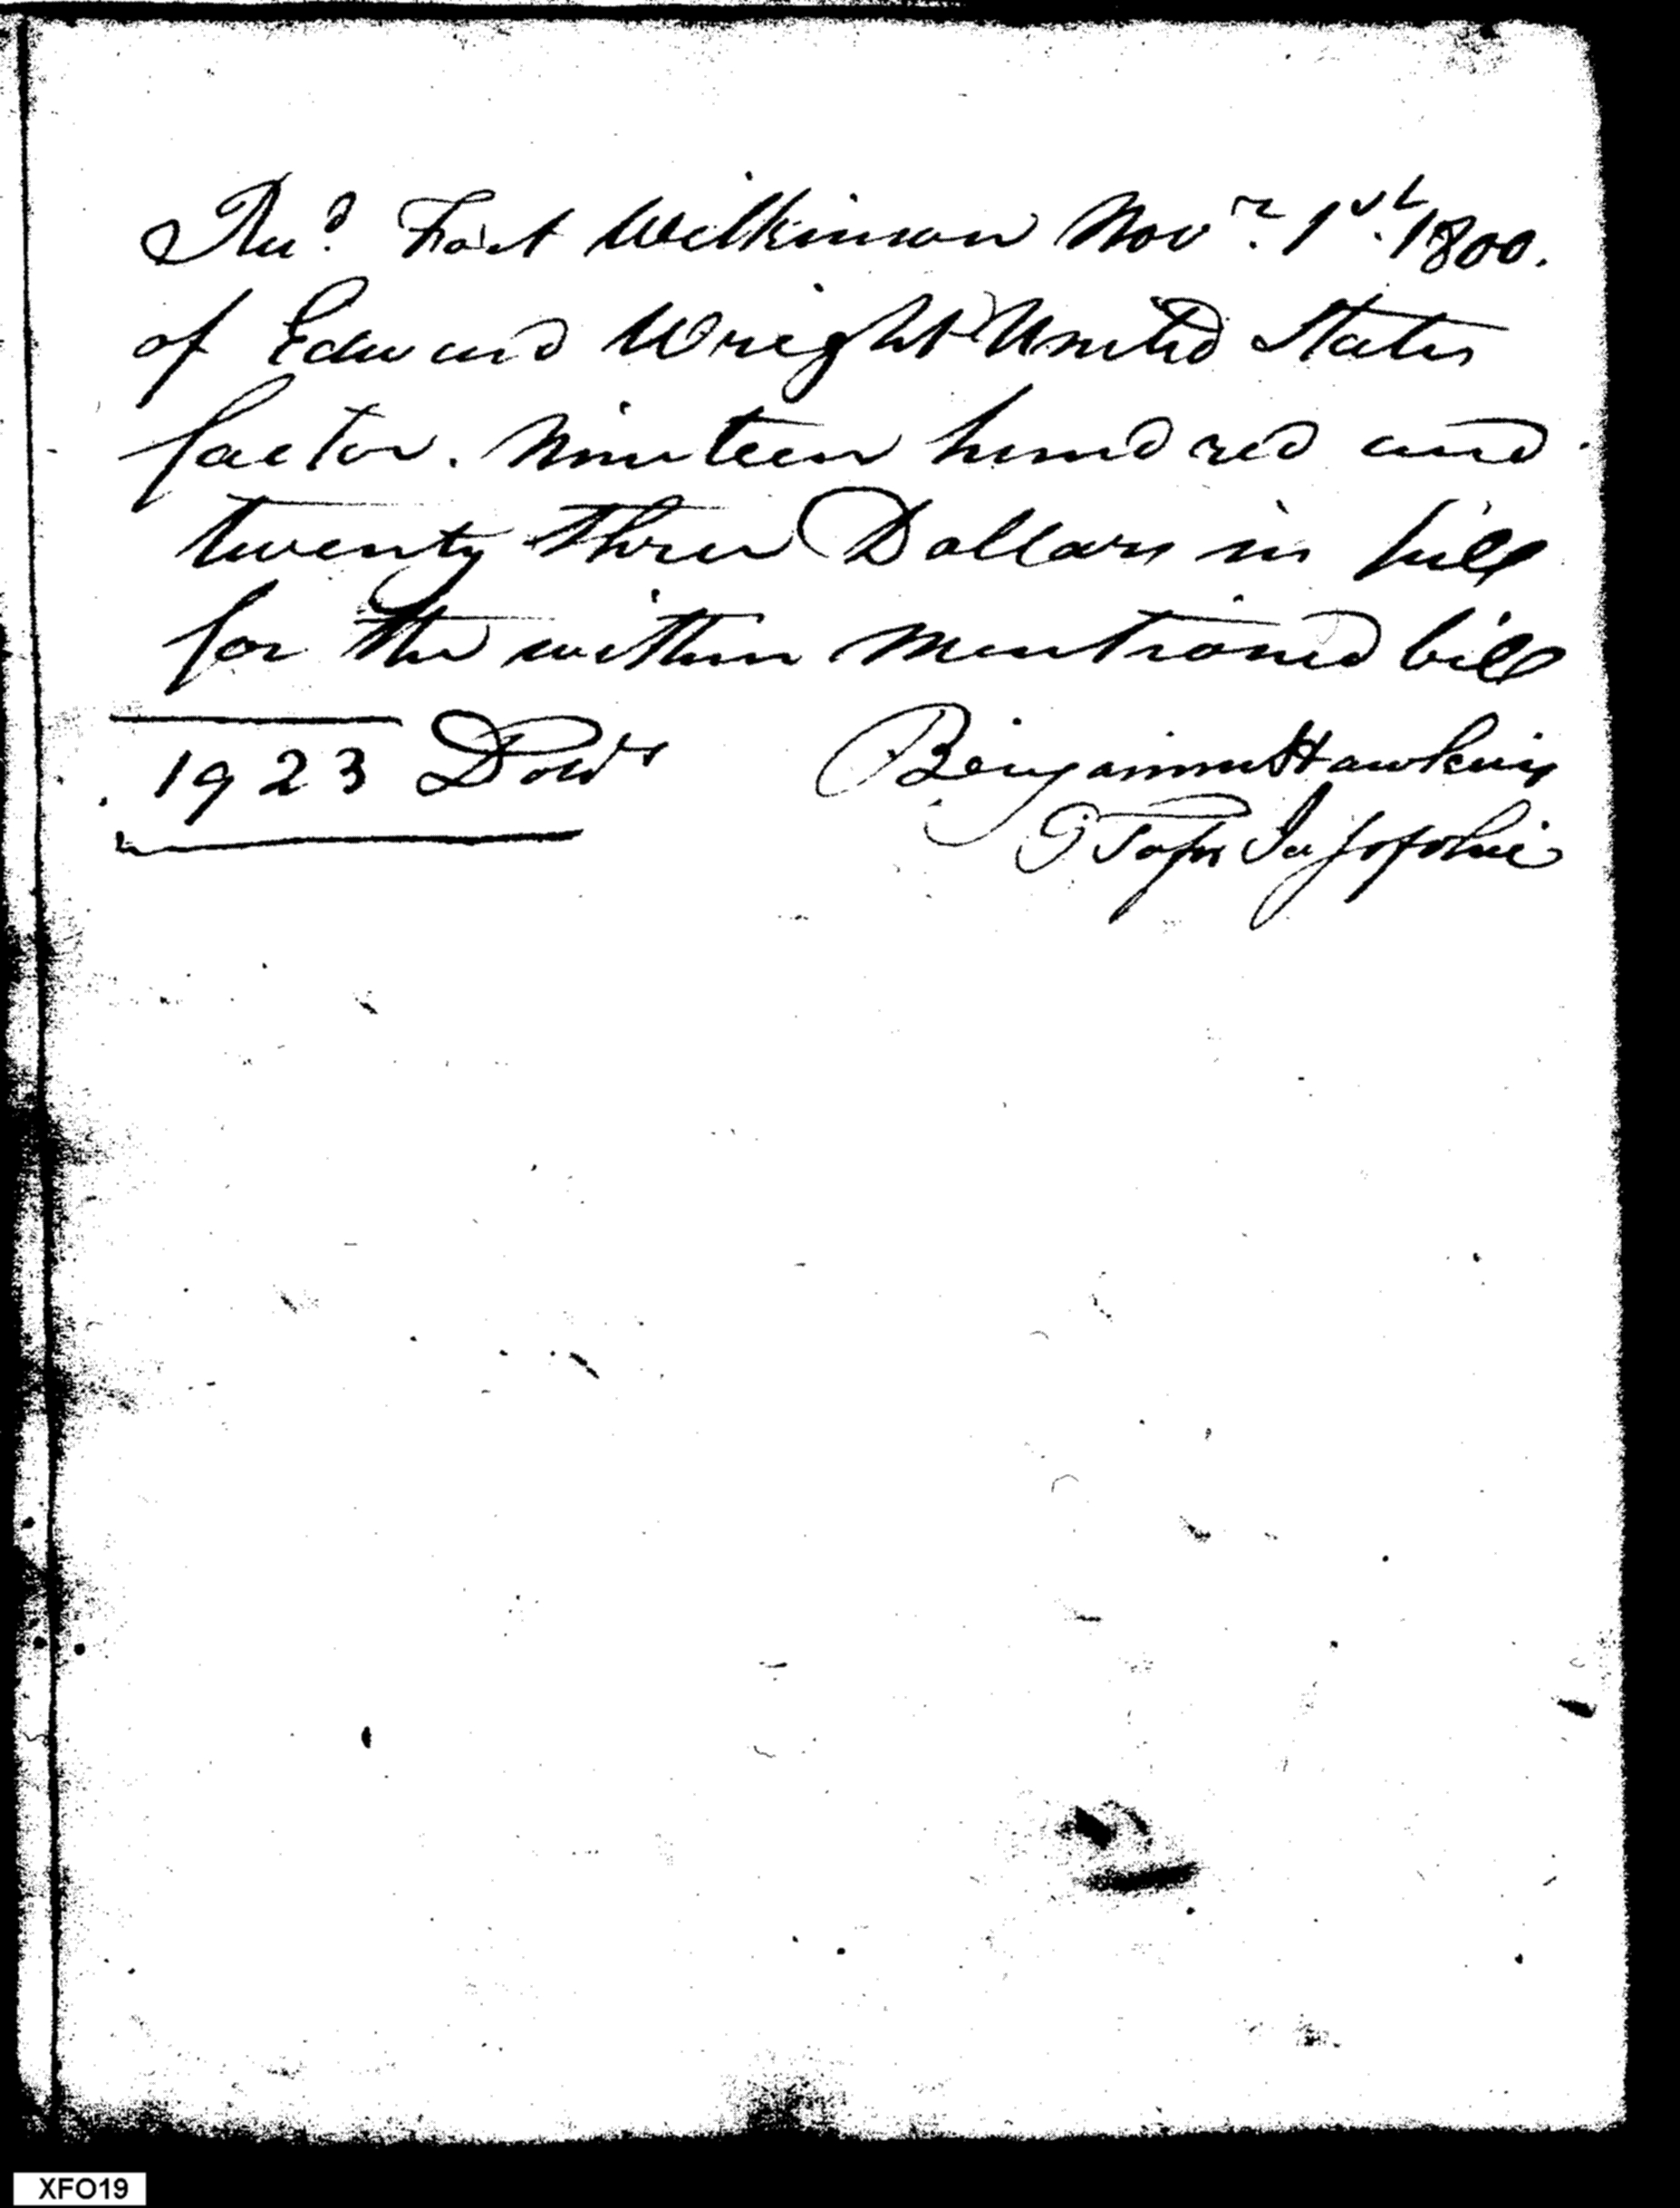 Recd. Fort Wilkinson Novr. 1st. 1800.
of Edward Wright United States
factor. Nineteen hundred and
twenty three Dollars in full
for the within mentioned bill
1923 Dolls
Benjamin Hawkins
XFO19